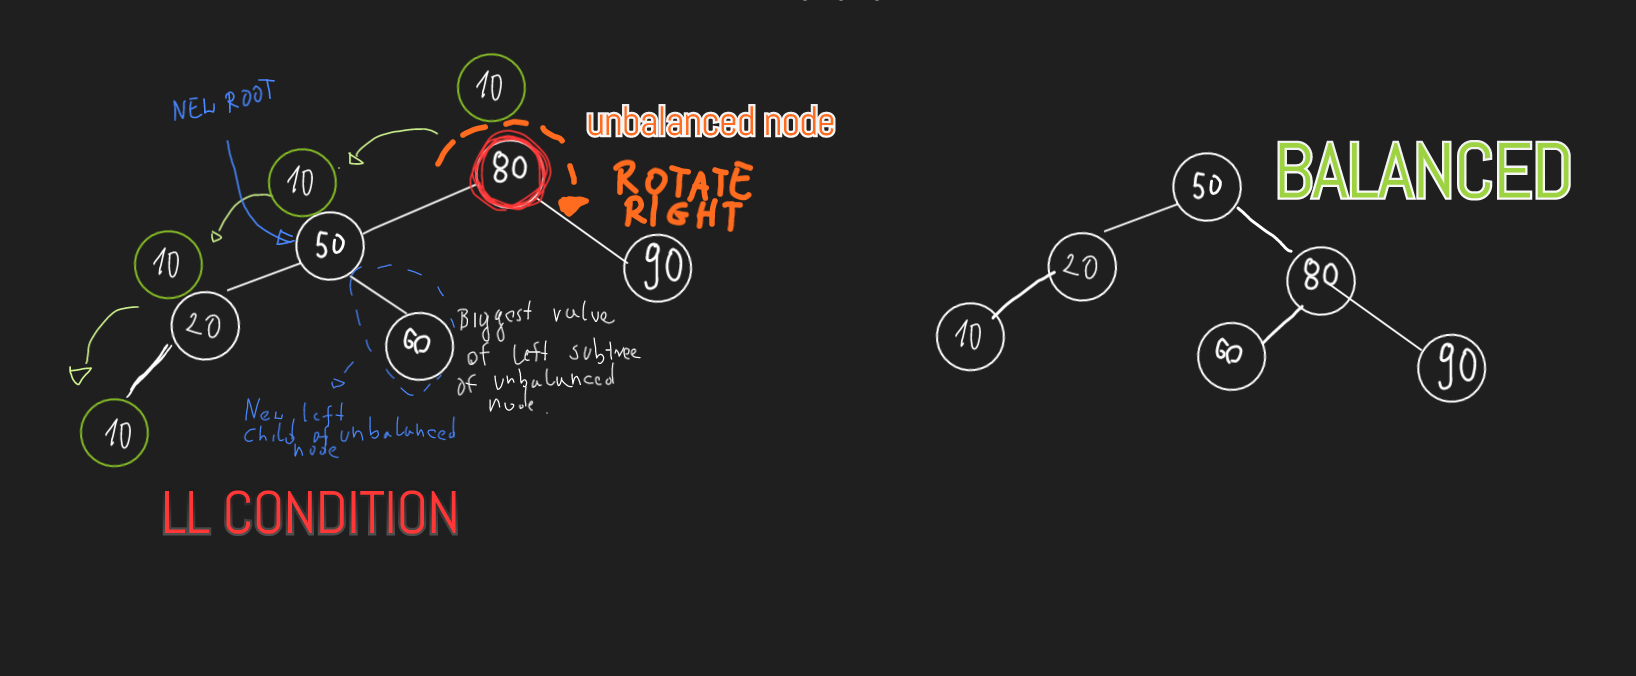 10
unbalanced node
NEW ROOT
80
ROTATE
RIGHT
10
50
10
90
20
60
Biggest value
of left subtree
of unbalanced
node.
New left
child of unbalanced
node
10
LL CONDITION
BALANCED
50
20
80
10
60
90